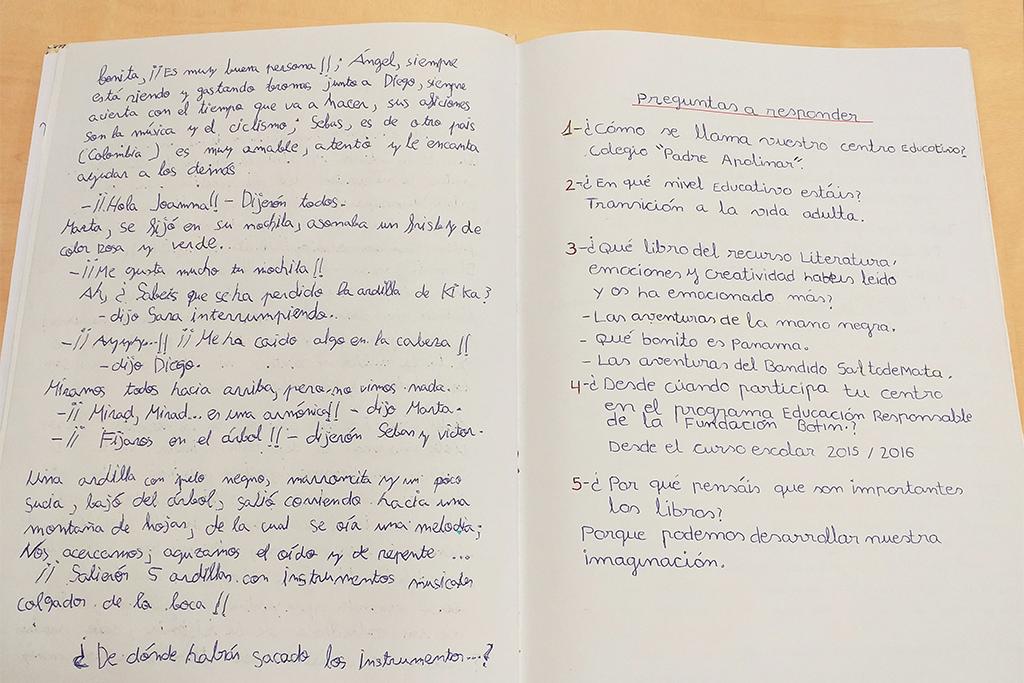 bonita, ¡¡Es muy buena persona!!; Ángel, siempre
está riendo y gastando bromas junto a Diego, siempre
acierta con el tiempo que va a hacer, sus aficiones
son la música y el ciclismo; Sebas, es de otro pais
(Colombia) es muy amable, atento y le encanta
ayudar a los demás
-¡¡Hola Joamna!! - Dijerón todos.
Marta, se fijó en su mochila, asomaba un frisby de
color rosa y verde..
-¡¡Me gusta mucho tu mochila!!
Ah, ¿Sabeis que se ha perdido la ardilla de Kika?
- dijo Sara interrumpiendo..
-¡¡ Ayyyyy...!! ¡¡ Me ha caido algo en la cabeza !!
- dijo Diego.
Miramos todos hacia arriba, pero no vimos nada.
-¡¡ Mirad, Mirad... es una armónica!! - dijo Marta.
-¡¡ Fijaros en el árbol !! - dijerón Sebas y victor.
Una ardilla con pelo negro, marroncita y un poco
sucia, bajó del árbol, salió corriendo hacia una
montaña de hojas, de la cual se oía una melodia;
Nos acercamos; agudizamos el oído y de repente ...
¡¡ Salierón 5 ardillas con instrumentos musicales
colgador de la boca !!
¿ De dónde habrán sacado los instrumentos...?
Preguntas a responder
1-¿Cómo se llama vuestro centro Educativo?
Colegio "Padre Apolinar".
2-¿En qué nivel Educativo estáis?
Transición a la vida adulta.
3-¿Qué libro del recurso Literatura,
emociones y creatividad habeis leido
y os ha emocionado más?
- Las aventuras de la mano negra.
- Qué bonito es Panama.
- Las aventuras del Bandido Saltodemata.
4-¿Desde cúando participa tu centro
en el programa Educación Responsable
de la Fundación Botin.?
Desde el curso escolar 2015 / 2016
5-¿Por qué pensáis que son importantes
los libros?
Porque podemos desarrollar nuestra
imaginación.